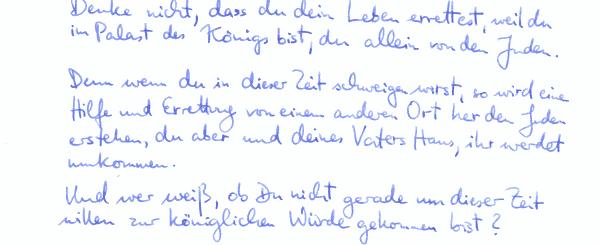 Denke nicht, dass du dein Leben errettest, weil du
im Palast des Königs bist, du allein von den Juden.
Denn wenn du in dieser Zeit schweigen wirst, so wird eine
Hilfe und Errettung von einem anderen Ort her den Juden
erstehen, du aber und deines Vaters Haus, ihr werdet
umkommen.
Und wer weiß, ob Du nicht gerade um dieser Zeit
willen zur königlichen Würde gekommen bist?